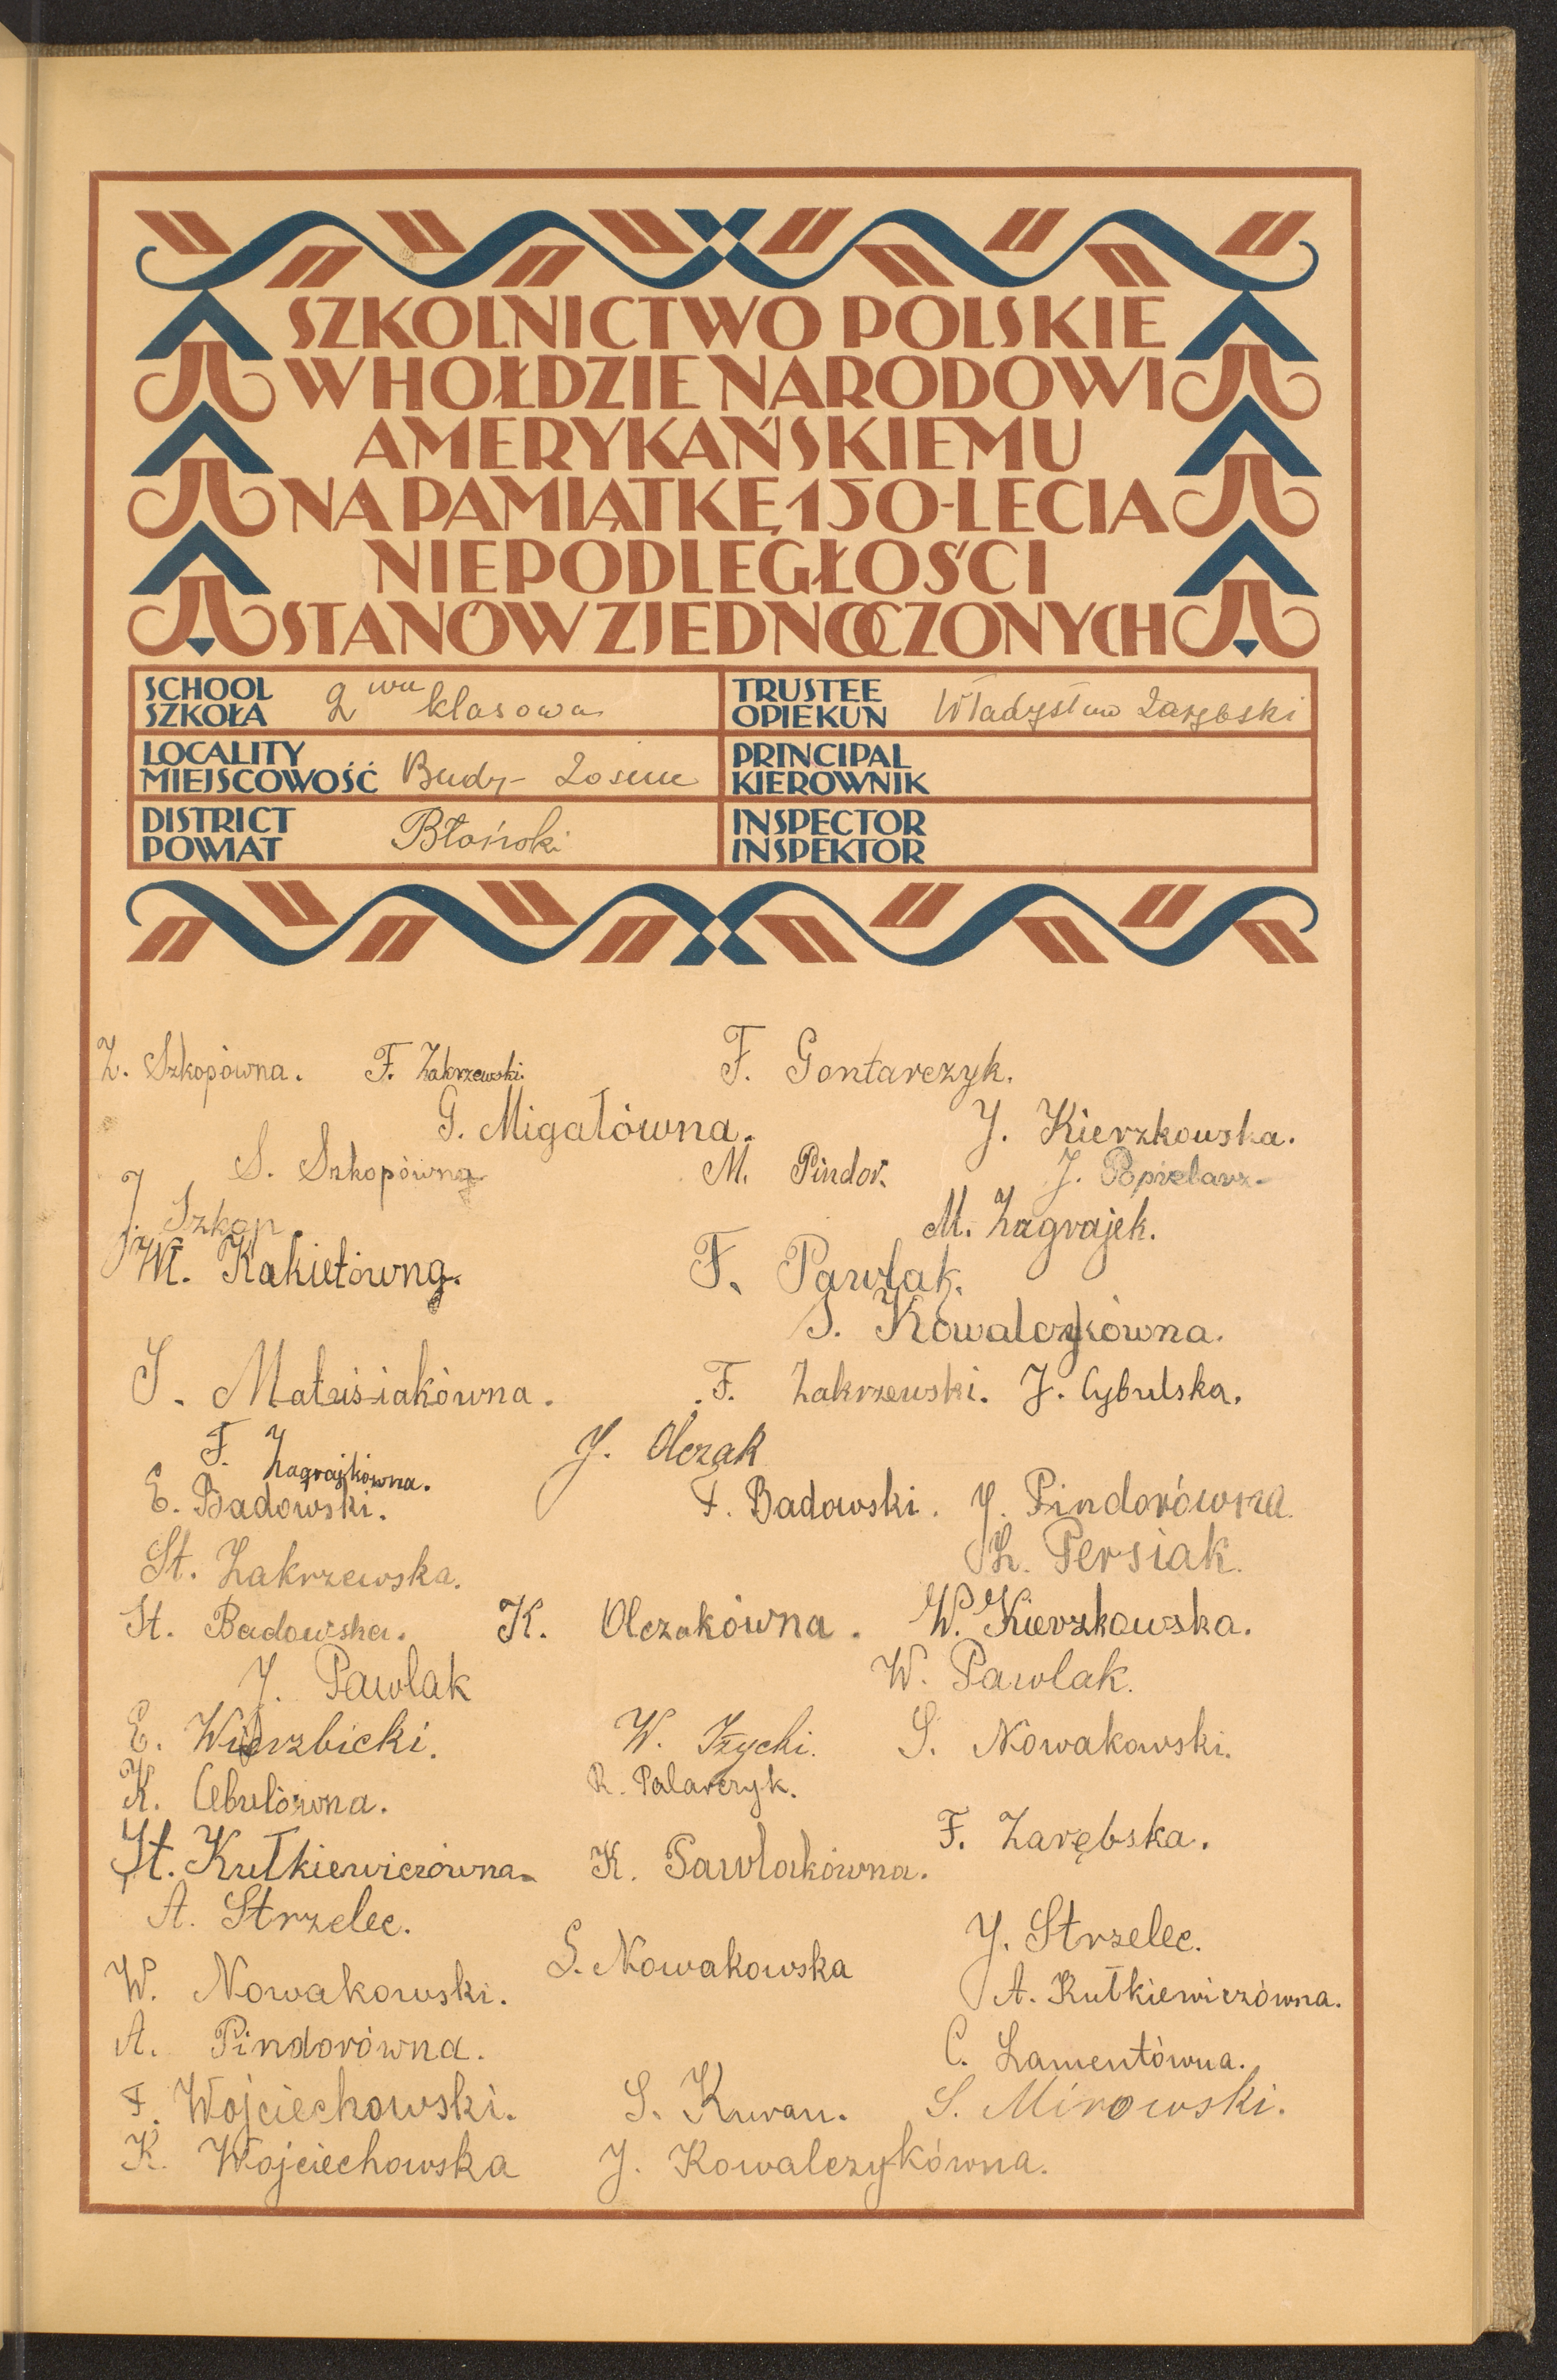 SZKOLNICTWO POLSKIE
W HOŁDZIE NARODOWI
AMERYKAŃSKIEMU
NA PAMIĄTKĘ 150-LECIA
NIEPODLEGŁOŚCI
STANÓW ZJEDNOCZONYCH
SCHOOL
SZKOŁA
2 wu klasowa
TRUSTEE
OPIEKUN
Władysław Zarębski
LOCALITY
MIEJSCOWOŚĆ
Budy-
PRINCIPAL
KIEROWNIK
DISTRICT
POWIAT
Błoński
INSPECTOR
INSPEKTOR
Z. Szkopówna. F. Zakrzewski. F. Gontarczyk.
G. Migałówna. J. Kierzkowska.
S. Szkopówna M. Pindor. J. Popielarz.
J. Szkop M. Zagrajek.
M. Kakietówna. F. Pawlak.
S. Kowalczykówna.
S. Matusiakówna. F. Zakrzewski. J. Cybulska.
F. Zagrajkówna. J. Olczak
E. Badowski. F. Badowski. J. Pindorówna.
St. Zakrzewska. Z. Persiak.
St. Badowska. K. Olczakówna. W. Kierzkowska.
J. Pawlak W. Pawlak.
E. Wierzbicki. W. Iżycki. S. Nowakowski.
K. Cebulówna. R. Palarczyk.
F. Zarębska.
St. Kutkiewiczówna. K. Pawlakówna.
A. Strzelec. J. Strzelec.
W. Nowakowski. S. Nowakowska A. Kutkiewiczówna.
A. Pindorówna. C. Lamentówna.
F. Wojciechowski. S. Kuran. S. Mirowski.
K. Wojciechowska J. Kowalczykówna.